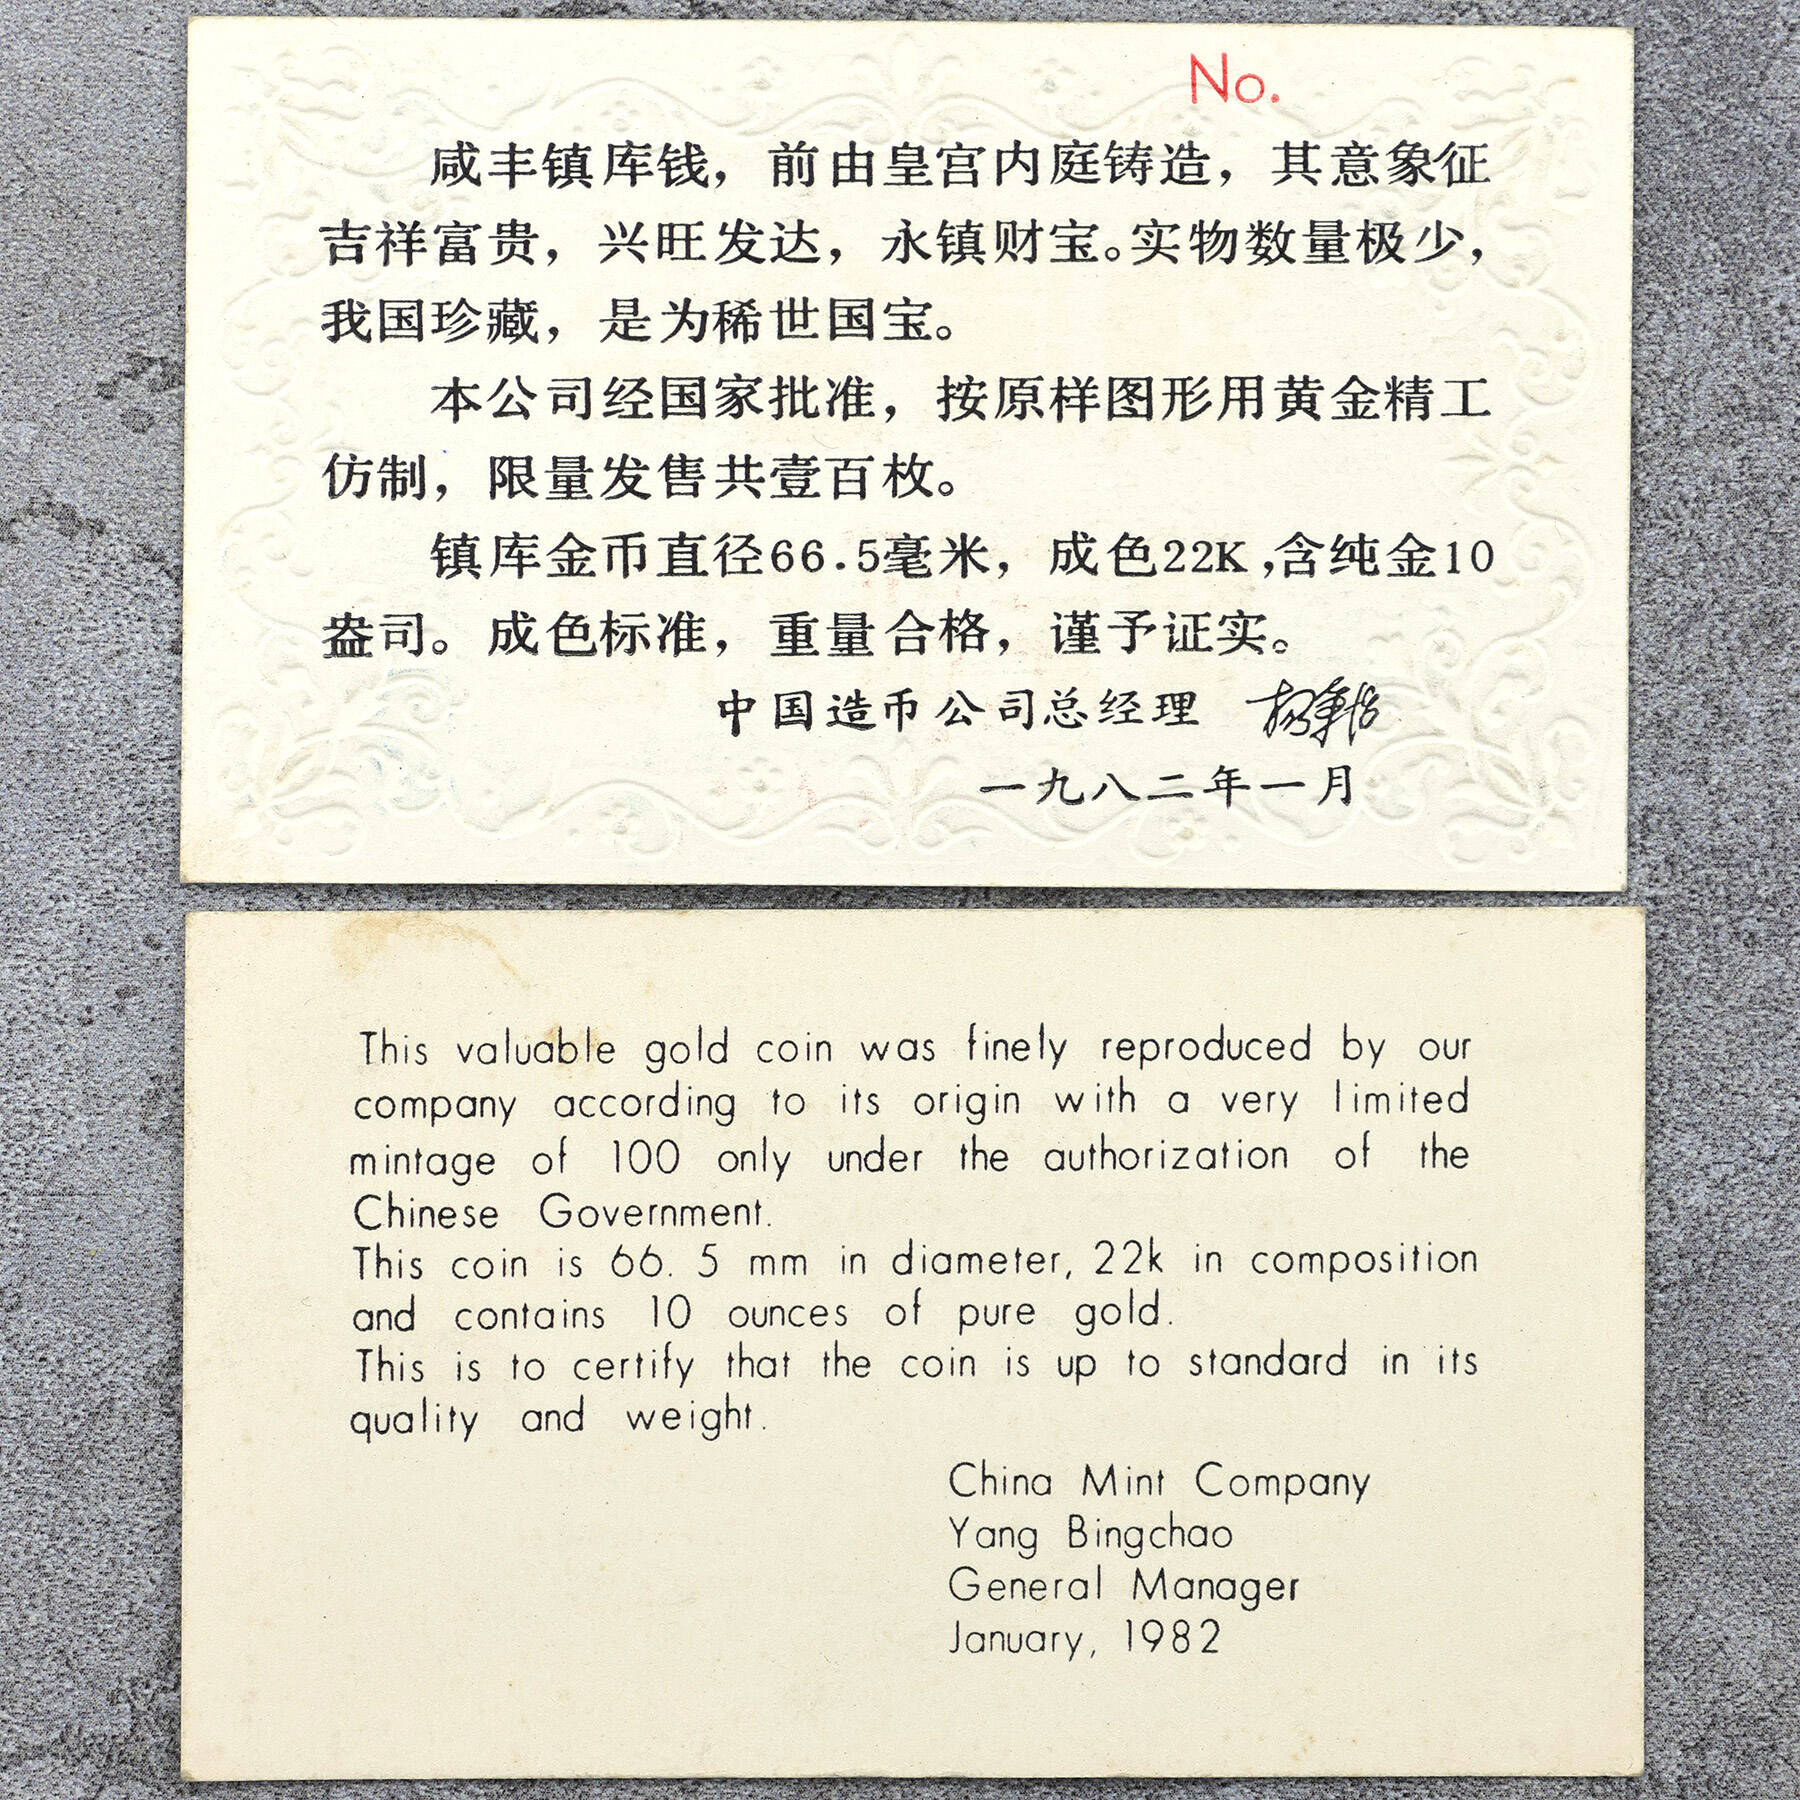 No.
咸丰镇库钱，前由皇宫内庭铸造，其意象征
吉祥富贵，兴旺发达，永镇财宝。实物数量极少，
我国珍藏，是为稀世国宝。
本公司经国家批准，按原样图形用黄金精工
仿制，限量发售共壹百枚。
镇库金币直径66.5毫米，成色22K,含纯金10
盎司。成色标准，重量合格，谨予证实。
中国造币公司总经理
一九八二年一月
This valuable gold coin was finely reproduced by our
company according to its origin with a very limited
mintage of 100 only under the authorization of the
Chinese Government.
This coin is 66. 5 mm in diameter, 22k in composition
and contains 10 ounces of pure gold.
This is to certify that the coin is up to standard in its
quality and weight.
China Mint Company
Yang Bingchao
General Manager
January, 1982